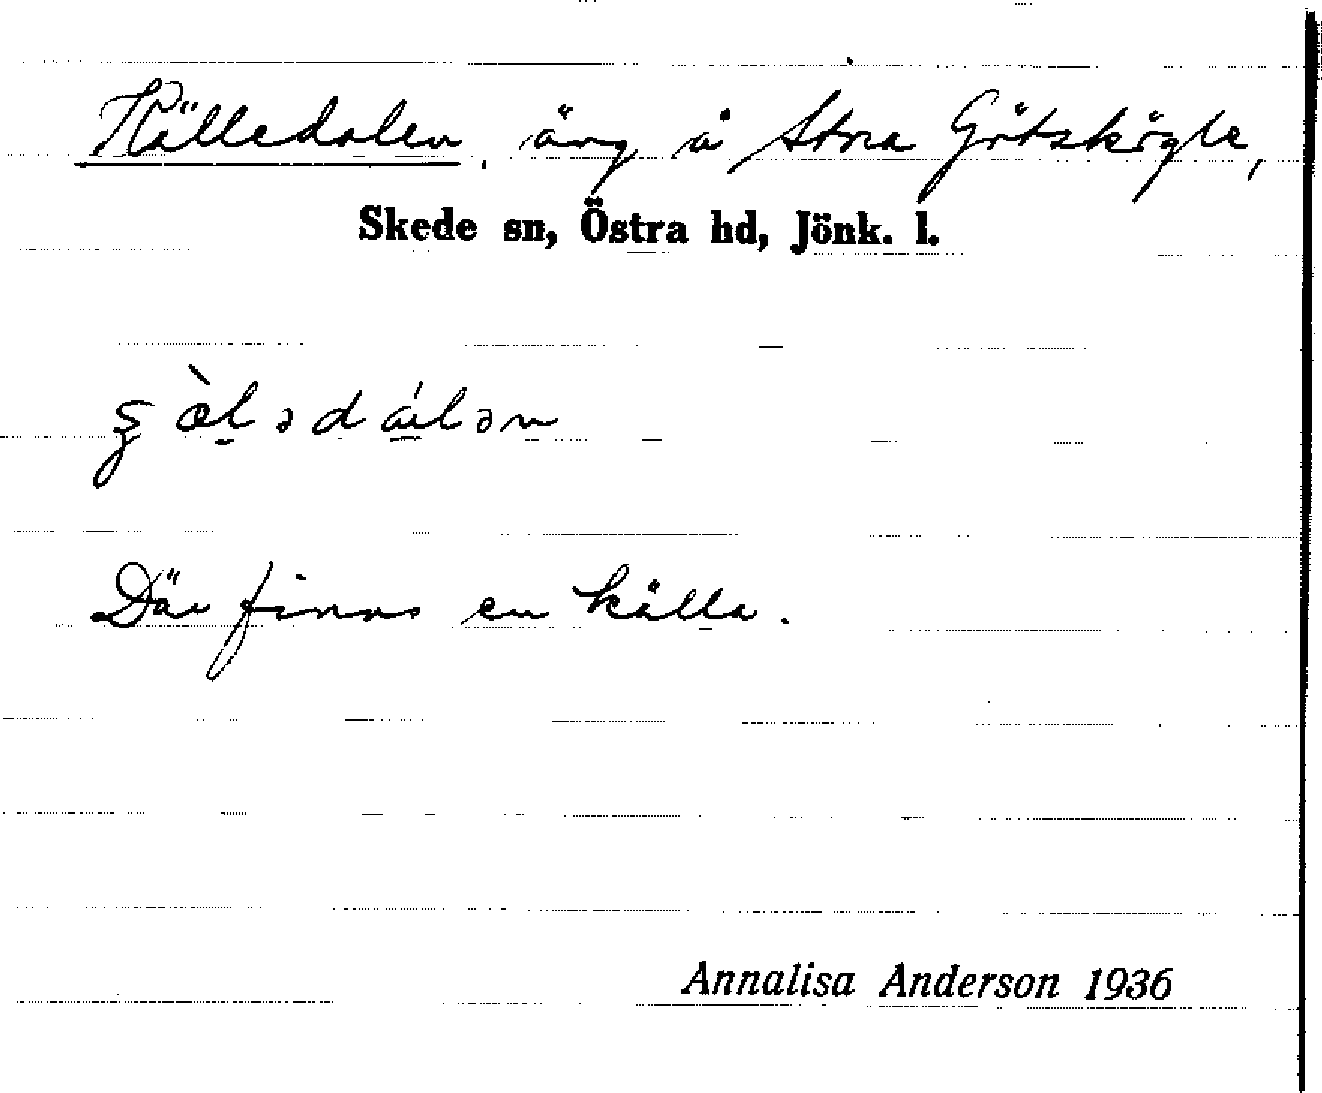 Källedalen, äng å Stora Götskögle,
Skede sn, Östra hd, Jönk. l.
Där finns en källa.
Annalisa Anderson 1936